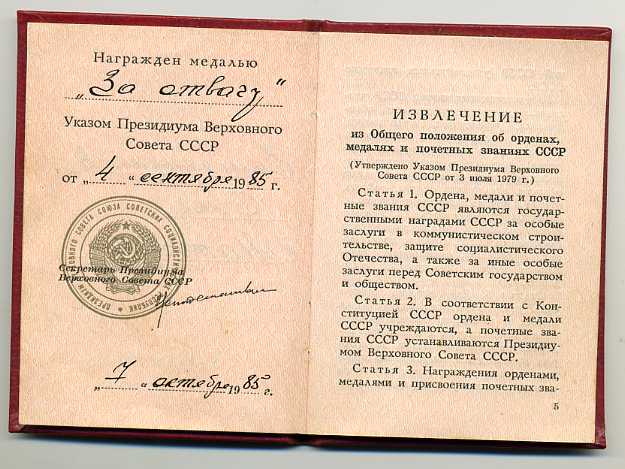 Награжден медалью
„За отвагу“
Указом Президиума Верховного
Совета СССР
от „4“ сентября 1985 г.
Секретарь Президиума
Верховного Совета СССР
„7“ октября 1985 г.
ИЗВЛЕЧЕНИЕ
из Общего положения об орденах,
медалях и почетных званиях СССР
(Утверждено Указом Президиума Верховного
Совета СССР от 3 июля 1979 г.)
Статья 1. Ордена, медали и почет-
ные звания СССР являются государ-
ственными наградами СССР за особые
заслуги в коммунистическом строи-
тельстве, защите социалистического
Отечества, а также за иные особые
заслуги перед Советским государством
и обществом.
Статья 2. В соответствии с Кон-
ституцией СССР ордена и медали
СССР учреждаются, а почетные зва-
ния СССР устанавливаются Президиу-
мом Верховного Совета СССР.
Статья 3. Награждения орденами,
медалями и присвоения почетных зва-
5